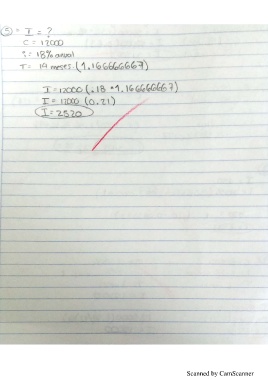 5) = I = ?
C = 12000
i = 18% anual
T = 14 meses. (1.166666667)
I = 12000 (.18 * 1.166666667)
I = 12000 (0.21)
I = 2520
Scanned by CamScanner